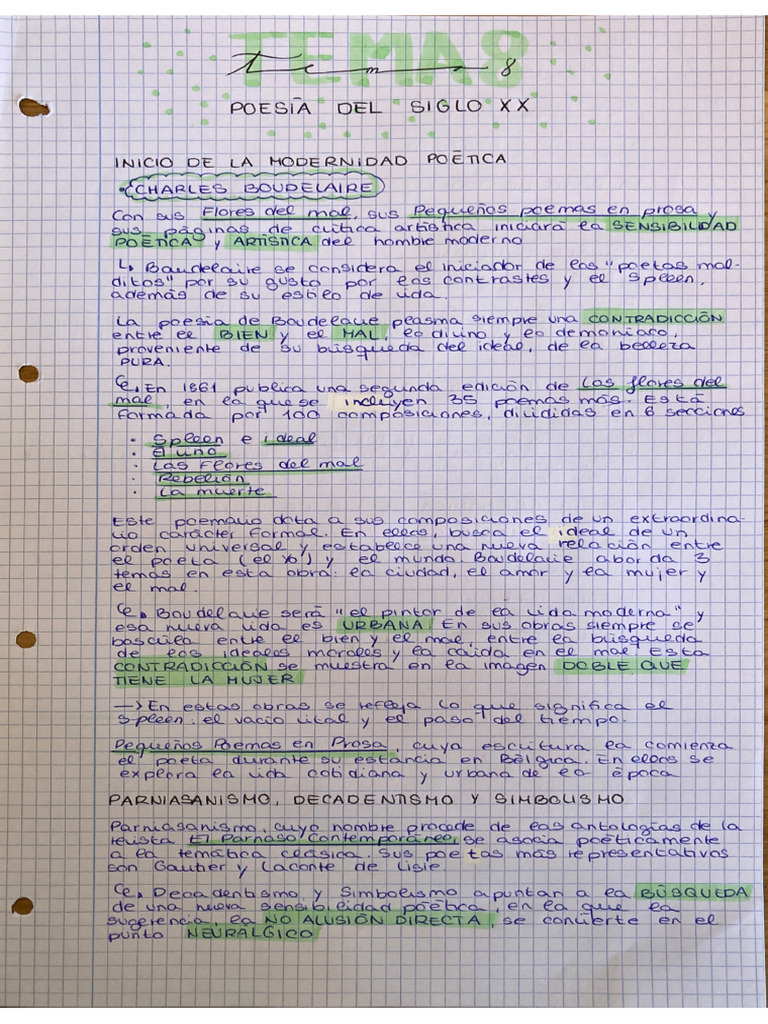 TEMA 8
Tema 8
POESÍA DEL SIGLO XX
INICIO DE LA MODERNIDAD POÉTICA
• CHARLES BOUDELAIRE
Con sus Flores del mal, sus Pequeños poemas en prosa y
sus páginas de crítica artística iniciará la SENSIBILIDAD
POÉTICA y ARTÍSTICA del hombre moderno
↳ Baudelaire se considera el iniciador de los "poetas mal-
ditos" por su gusto por los contrastes y el spleen,
además de su estilo de vida.
La poesía de Boudelaire plasma siempre una CONTRADICCIÓN
entre el BIEN y el MAL, lo divino y lo demoníaco,
proveniente de su búsqueda del ideal, de la belleza
PURA.
En 1861 publica una segunda edición de Las flores del
mal, en la que se incluyen 35 poemas más. Está
formada por 100 composiciones, divididas en 6 secciones
• Spleen e ideal
• El uno
• Las Flores del mal
• Rebelión
• La muerte
Este poemario dota a sus composiciones de un extraordina-
rio carácter formal. En ellos, busca el ideal de un
orden universal y establece una nueva relación entre
el poeta (el yo) y el mundo. Boudelaire aborda 3
temas en esta obra: la ciudad, el amor y la mujer y
el mal.
Boudelaire será "el pintor de la vida moderna" y
esa nueva vida es URBANA. En sus obras siempre se
bascula entre el bien y el mal, entre la búsqueda
de los ideales morales y la caída en el mal. Esta
CONTRADICCIÓN se muestra en la imagen DOBLE QUE
TIENE LA MUJER
—> En estas obras se refleja lo que significa el
spleen: el vacío vital y el paso del tiempo.
Pequeños Poemas en Prosa, cuya escritura la comienza
el poeta durante su estancia en Bélgica. En ellos se
explora la vida cotidiana y urbana de la época
PARNIASANISMO, DECADENTISMO Y SIMBOLISMO
Parniasanismo, cuyo nombre procede de las antologías de la
revista El Parnaso Contemporáneo, se asocia poéticamente
a la temática clásica. Sus poetas más representativos
son Gautier y Laconte de Lisle
Decadentismo y Simbolismo apuntan a la BÚSQUEDA
de una nueva sensibilidad poética, en la que la
sugerencia, la NO ALUSIÓN DIRECTA, se convierte en el
punto NEURÁLGICO